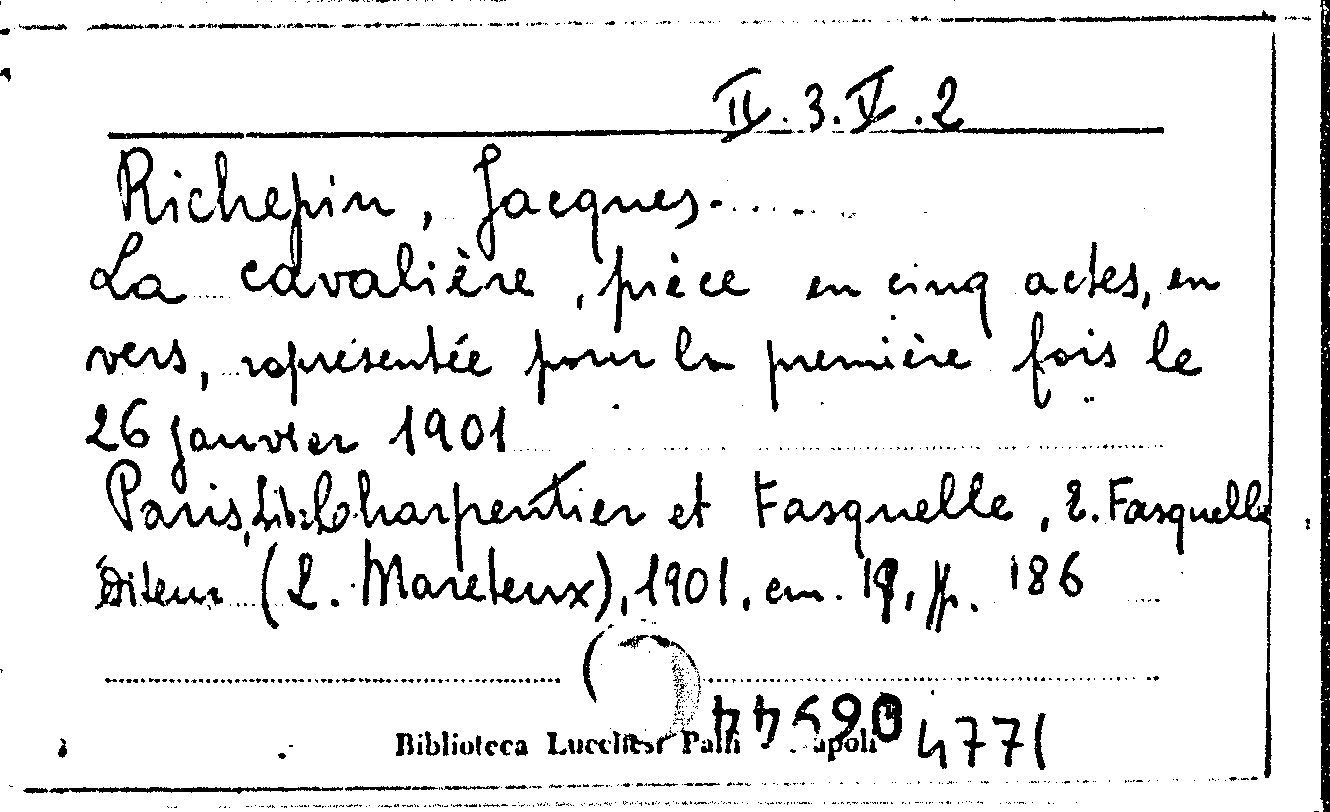 II.3.V.2
Richepin, Jacques.
La cavalière, pièce en cinq actes, en
vers, représentée pour la première fois le
26 janvier 1901
Paris, Libr. Charpentier et Fasquelle, E. Fasquelle
éditeur (L. Maretheux), 1901, cm. 19, pp. 186
Biblioteca Lucchesi Palli Napoli
4771